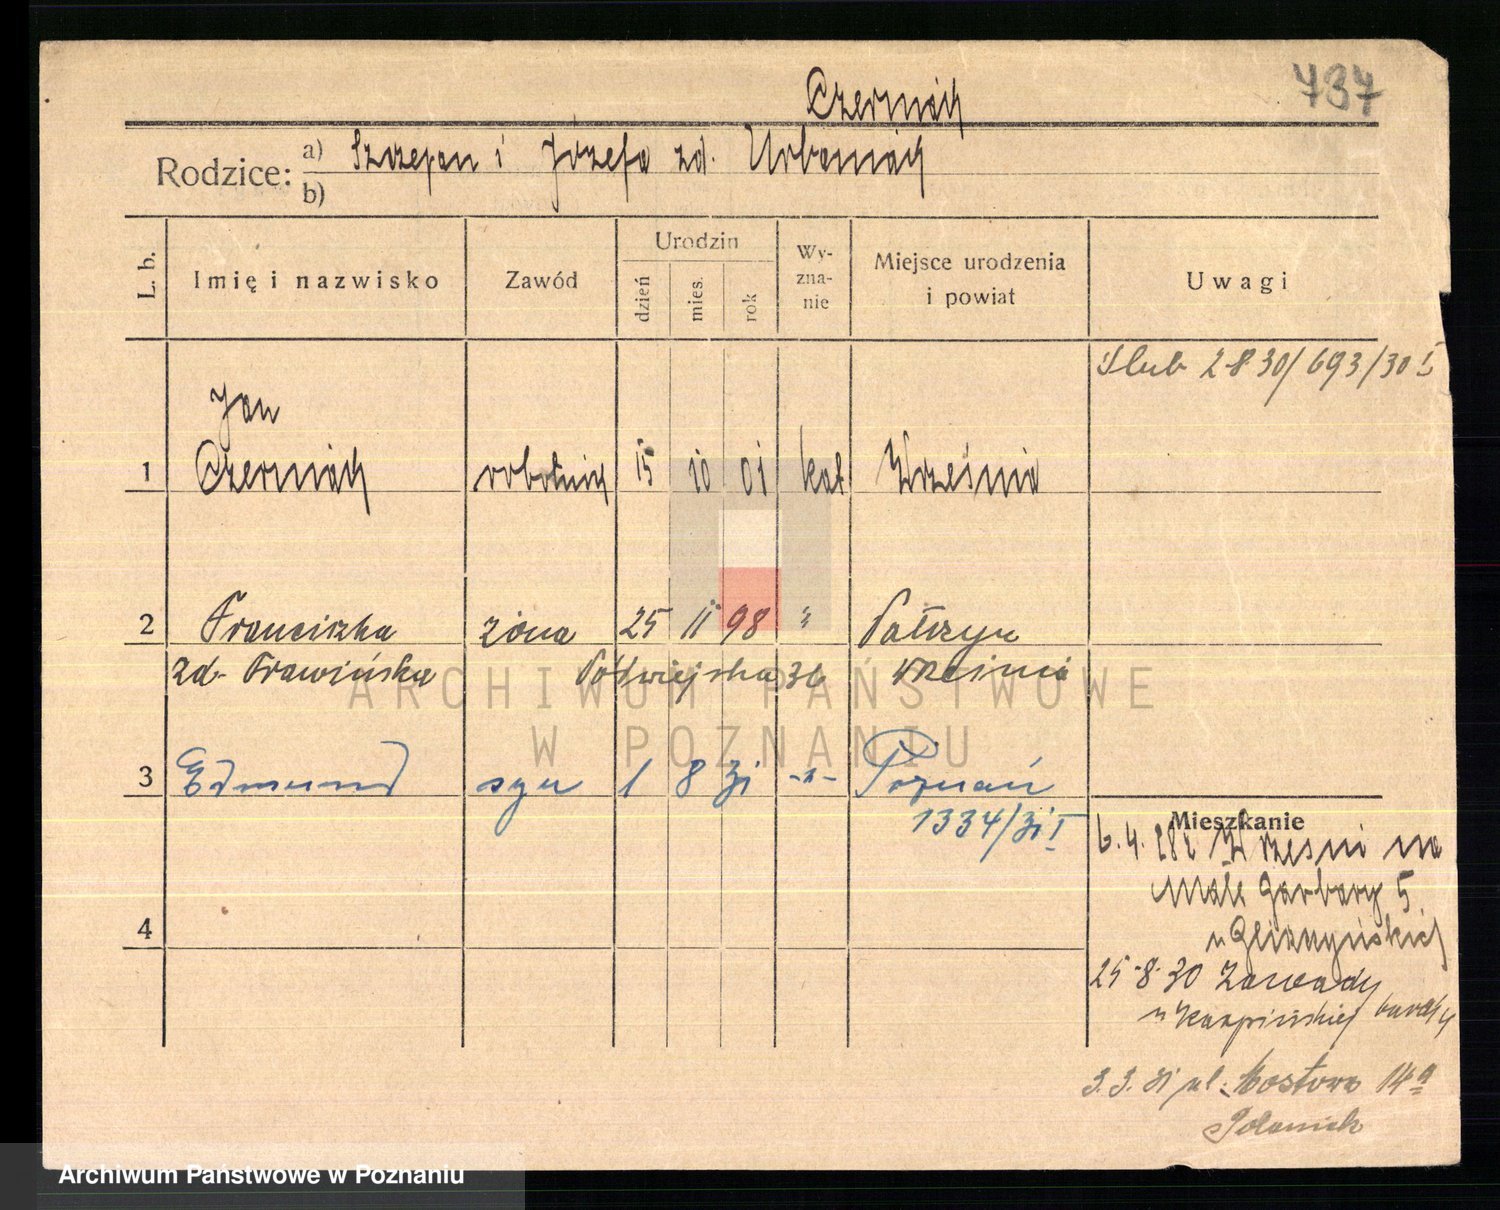 Czerniak
737
Rodzice: a) Szczepan i Józefa zd. Urbaniak
b)
L. b.
Imię i nazwisko
Zawód
Urodzin
dzień
mies.
rok
Wy-
zna-
nie
Miejsce urodzenia
i powiat
Uwagi
Ślub 2830/693/30 I
Jan
1 Czerniak robotnik 15 10 01 kat Września
2 Franciszka żona 25 11 98 " Pałczyn
zd. Trawińska Półwiejska 36 Września
3 Edmund syn 1 8 31 -"- Poznań
1334/31 I
Mieszkanie
6.4.28 z Wrześni na
Małe Garbary 5
u
4
25-8-30 Zawady
u Karpińskiej baraky
3.3.31 ul. Mostowa 14a
Polaniak
ARCHIWUM PAŃSTWOWE
W POZNANIU
Archiwum Państwowe w Poznaniu